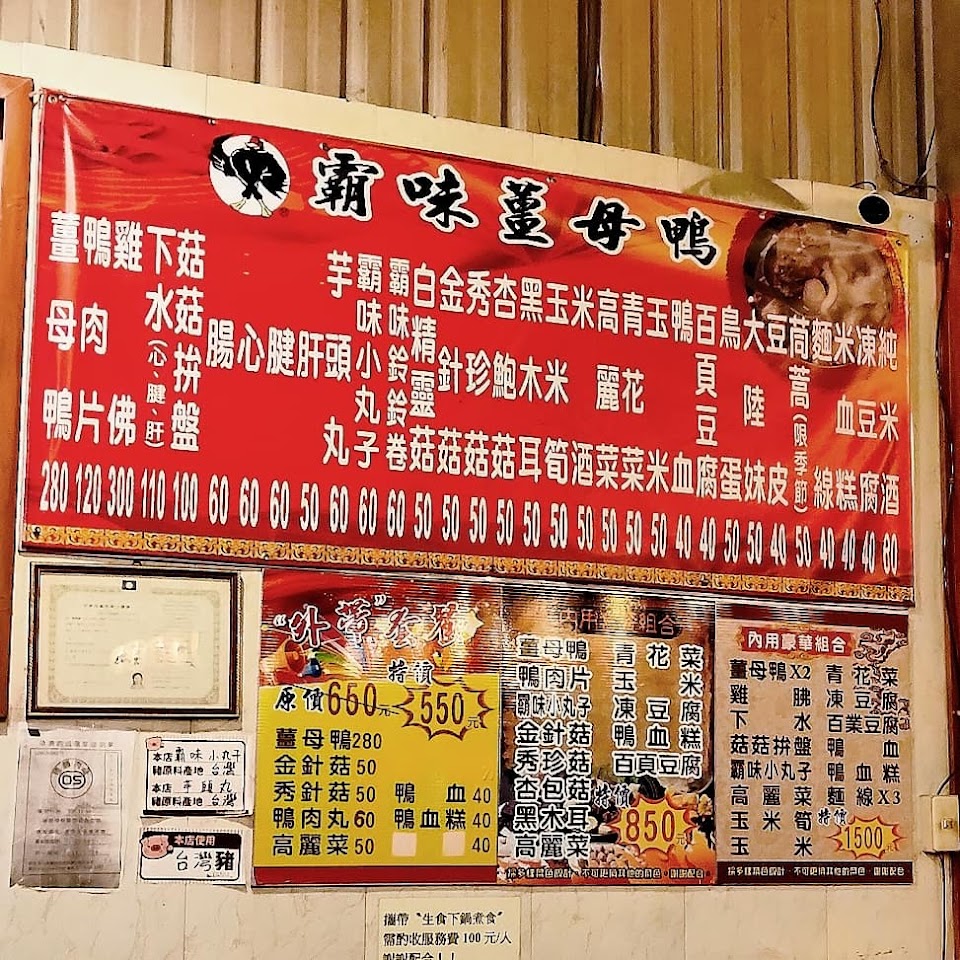 霸味薑母鴨
薑母鴨 280
鴨肉片 120
雞佛 300
下水(心、腱、肝) 110
菇菇拚盤 100
腸 60
心 60
腱 60
肝 50
芋頭丸 60
霸味小丸子 60
霸味鈴鈴卷 60
白精靈菇 50
金針菇 50
秀珍菇 50
杏鮑菇 50
黑木耳 50
玉米筍 50
米酒 50
高麗菜 50
青花菜 50
玉米 50
鴨血 40
百頁豆腐 40
鳥蛋 50
大陸妹 50
豆皮 40
茼蒿(限季節) 50
麵線 40
米血糕 40
凍豆腐 40
純米酒 60
"外帶"套餐
特價
原價650元 550元
薑母鴨280
金針菇50
秀針菇50 鴨血40
鴨肉丸60 鴨血糕40
高麗菜50 40
內用組合
薑母鴨 青花菜
鴨肉片 玉米
霸味小丸子 凍豆腐
金針菇 鴨血糕
秀珍菇 百頁豆腐
杏包菇
黑木耳
高麗菜
特價850元
採多樣菜色設計、不可更換其他的菜色、謝謝配合
內用豪華組合
薑母鴨X2 青花菜
雞胇 凍豆腐
下水 百業豆腐
菇菇拚盤 鴨血
霸味小丸子 鴨血糕
高麗菜 麵線X3
玉米筍
玉米
特價1500元
採多樣菜色設計、不可更換其他的菜色、謝謝配合
本店霸味小丸子
豬原料產地台灣
本店芋頭丸
豬原料產地台灣
本店使用
台灣豬
攜帶〝生食下鍋煮食〞
需酌收服務費100元/人
謝謝配合！！